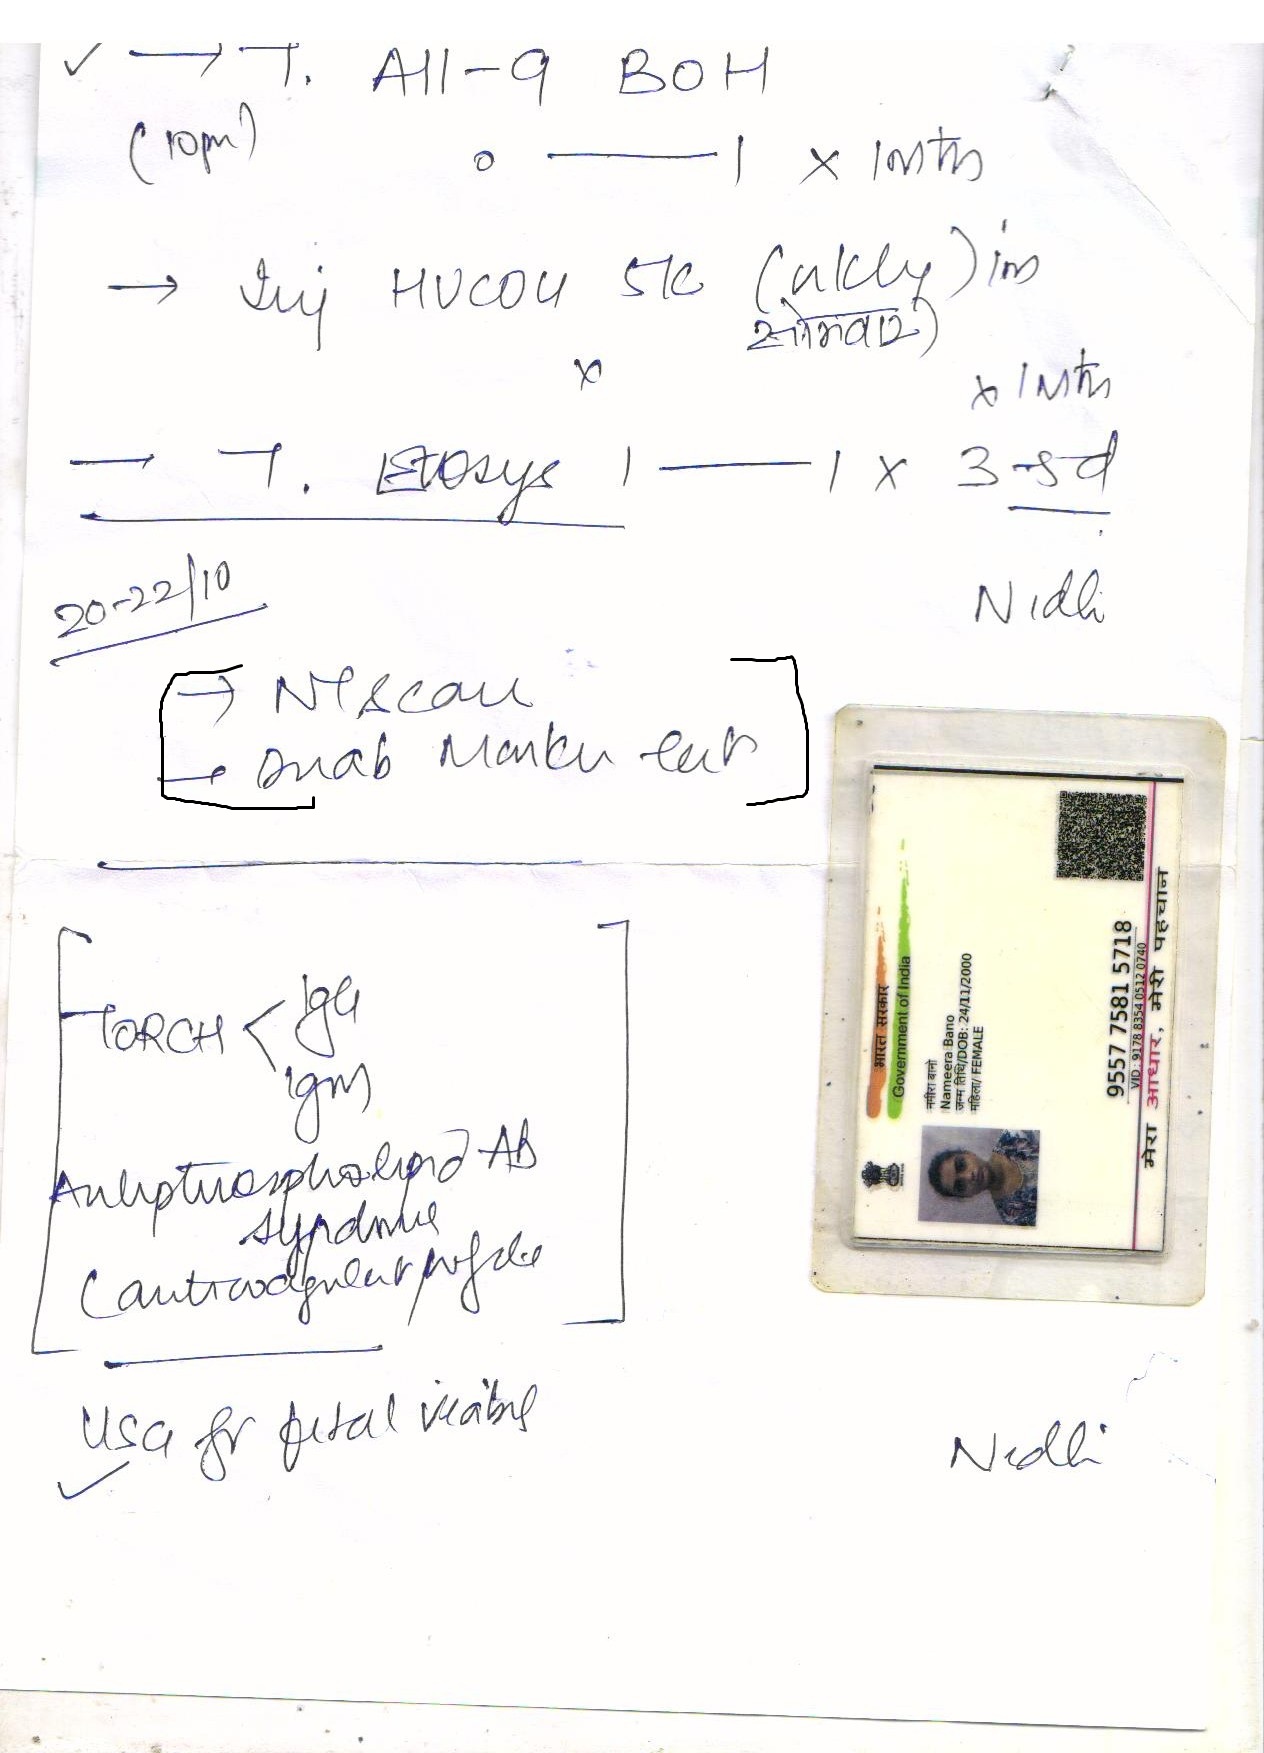 ✓ → T. All-9 BOH
(10pm)
0 — 1 x 1mth
→ Inj HUCOG 5k (wkly) im
सोमवार)
x
x 1mth
— T. 1 — 1 x 3-5d
20-22/10
Nidhi
→ NT scan
→ Dual Marker test
TORCH < IgG
IgM
Antiphospholipid AB
syndrome
(anticoagulant profile
USG for fetal viability
✓
Nidhi
भारत सरकार
Government of India
नमीरा बानो
Nameera Bano
जन्म तिथि/DOB: 24/11/2000
महिला/ FEMALE
9557 7581 5718
VID: 9178 8354 0512 0740
मेरा आधार, मेरी पहचान